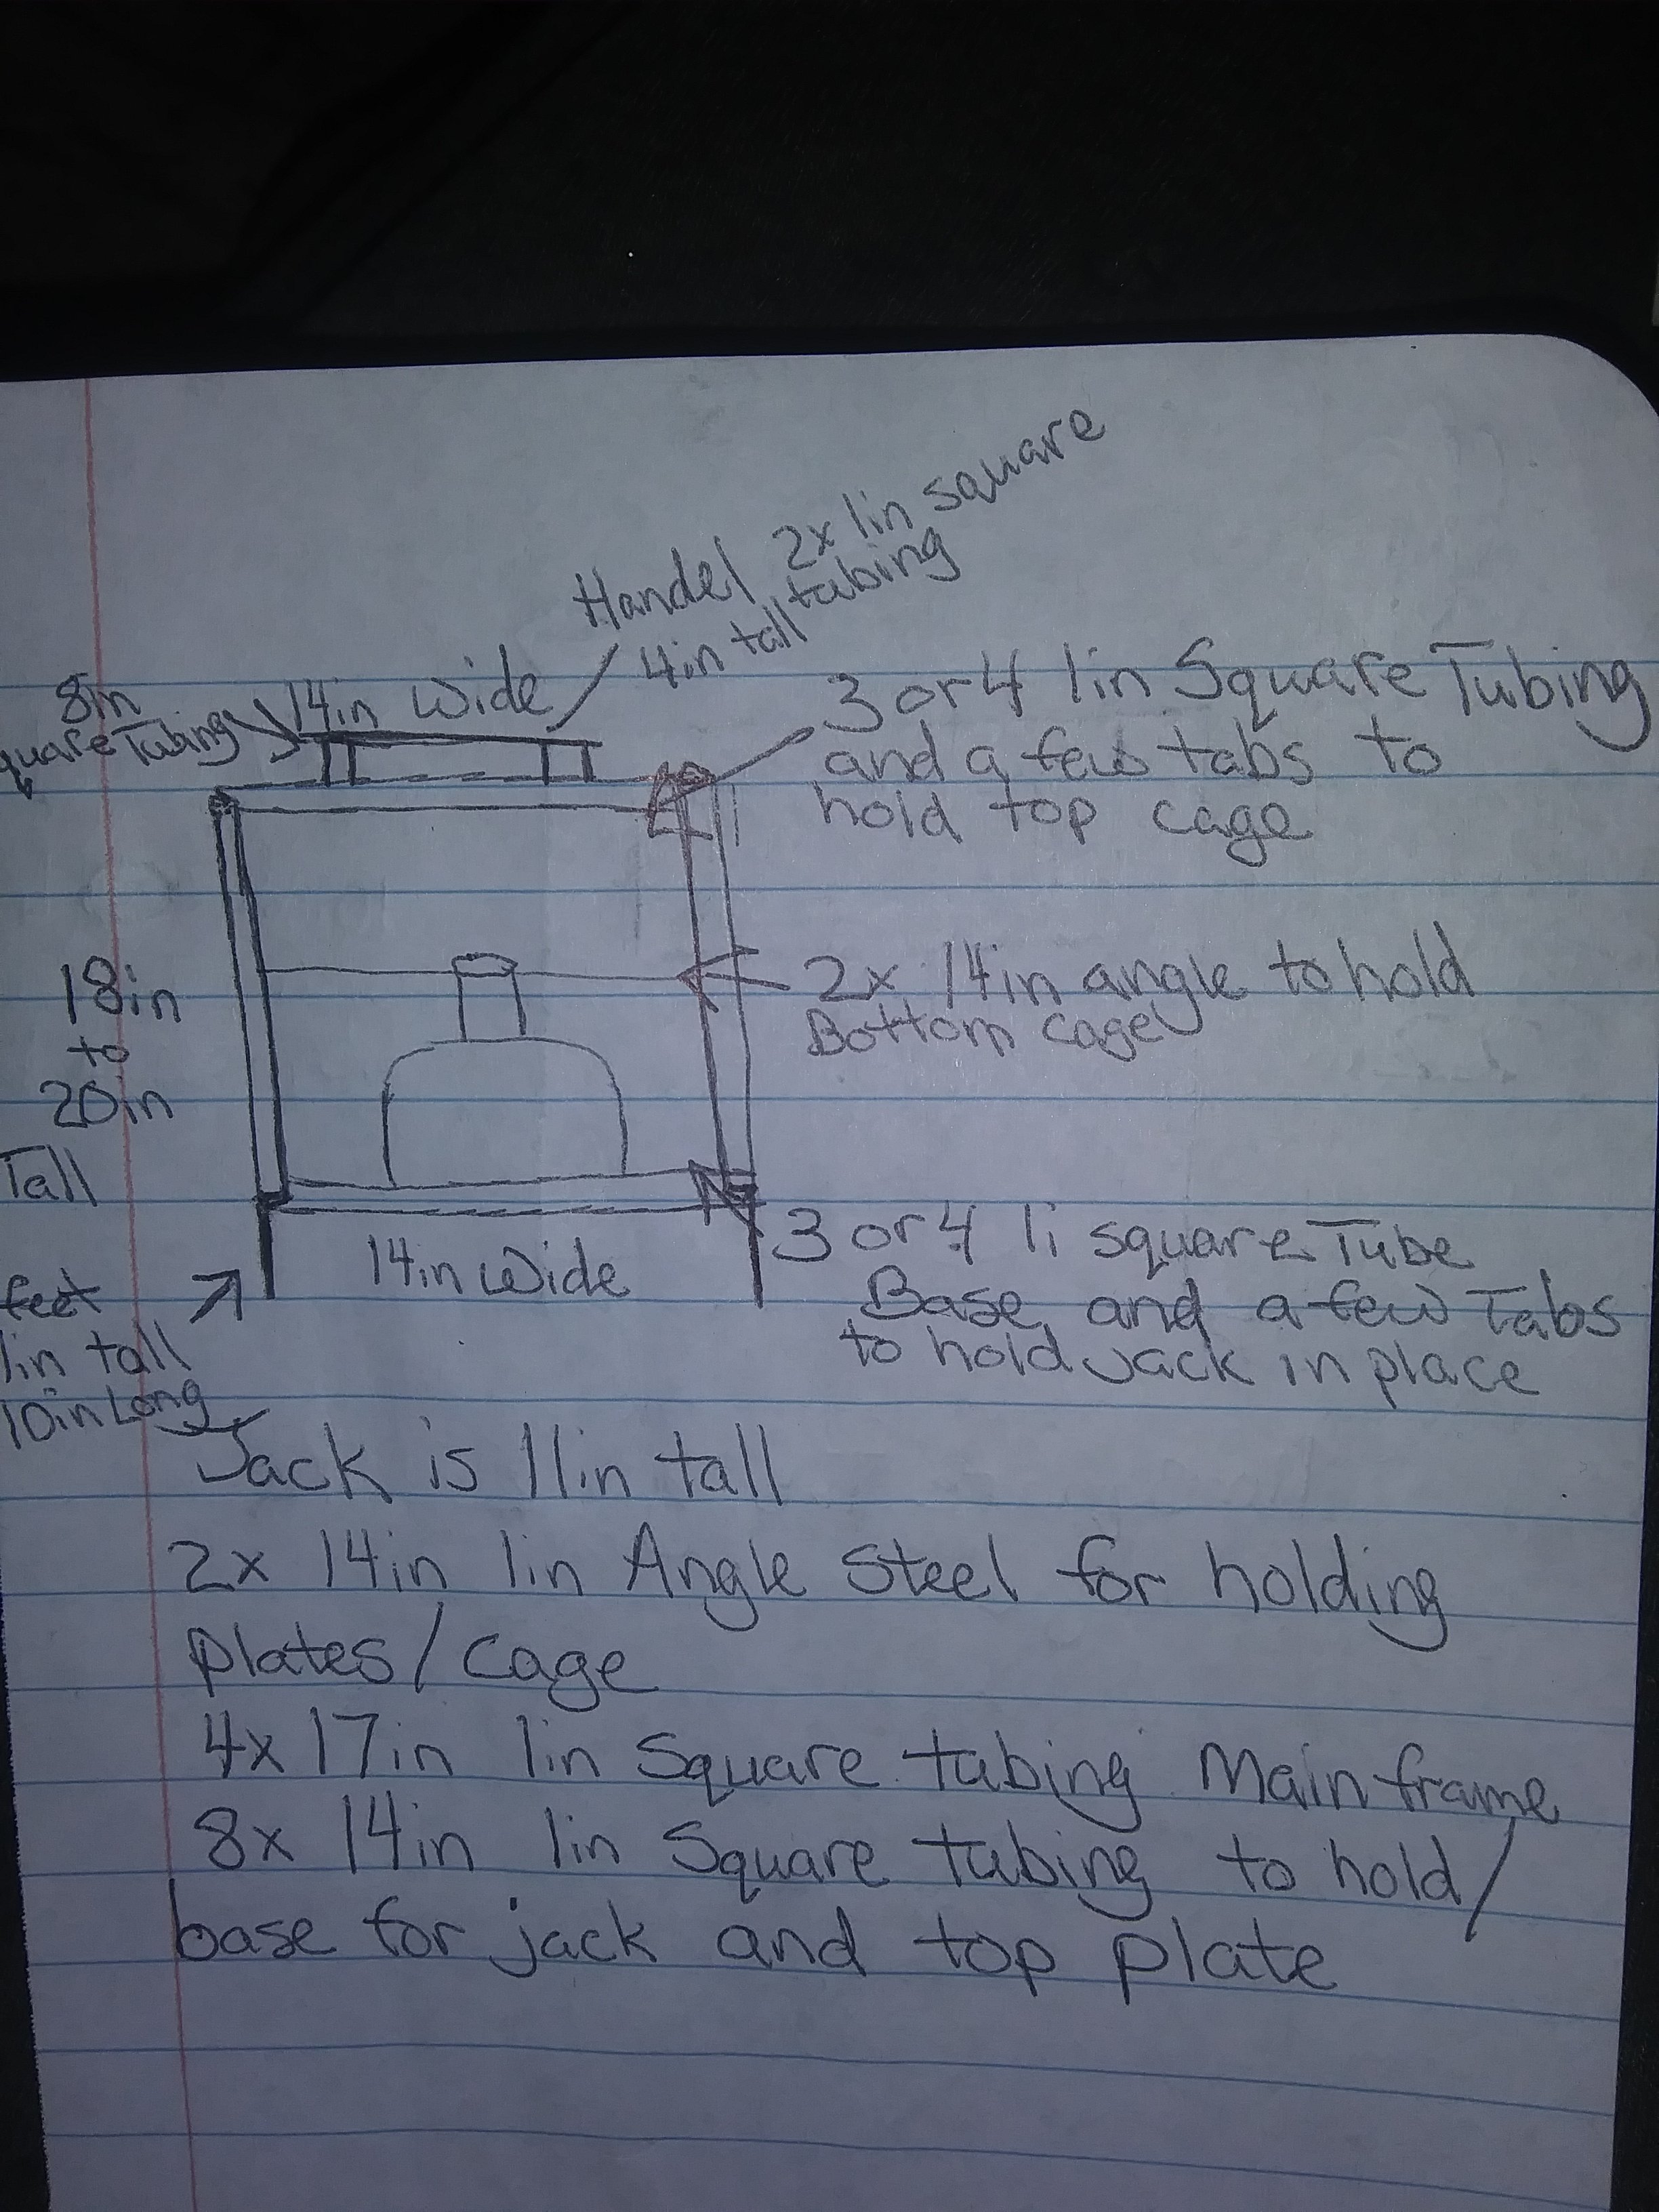 Handel 2x 1in square
4in tall tubing
8in
quare Tubing
14in wide
3 or 4 1in Square Tubing
and a few tabs to
hold top cage
18in
to
20in
Tall
2x 14in angle to hold
Bottom cage
14in wide
3 or 4 1i square Tube
Base and a few Tabs
to hold Jack in place
feet
1in tall
10in Long
Jack is 11in tall
2x 14in 1in Angle Steel for holding
plates/cage
4x 17in 1in Square tubing Main frame
8x 14in 1in Square tubing to hold/
base for jack and top plate